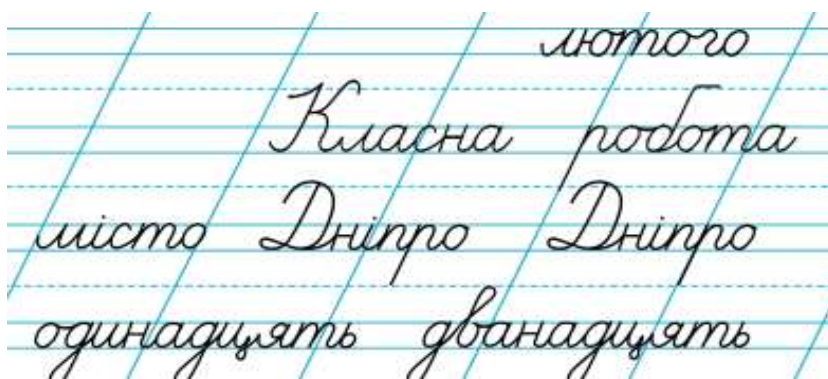 лютого
Класна робота
місто Дніпро Дніпро
одинадцять дванадцять